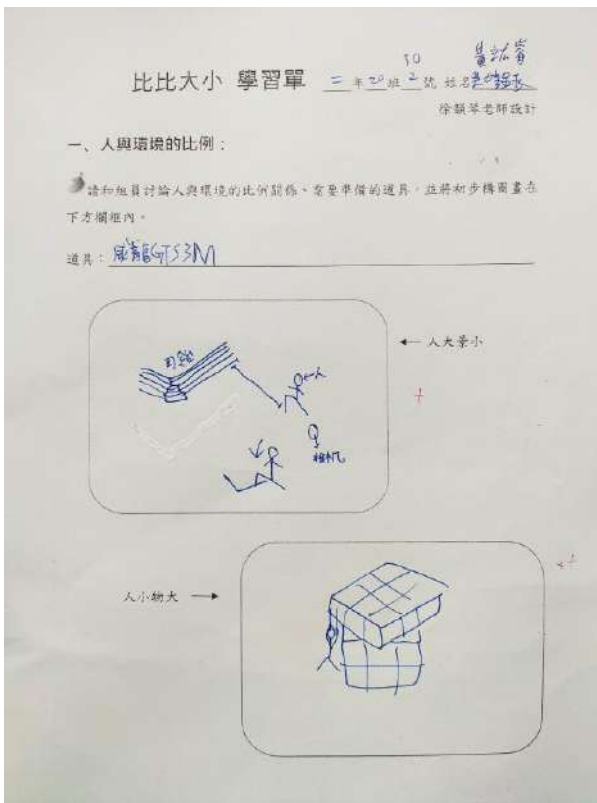 30
比比大小 學習單 二 年 20 班 2 號 姓名
徐韻琴老師設計
一、人與環境的比例：
請和組員討論人與環境的比例關係、需要準備的道具，並將初步構圖畫在
下方欄框內。
道具：威龍GTS3M
← 人大景小
司令台
人
相机
人小物大 →